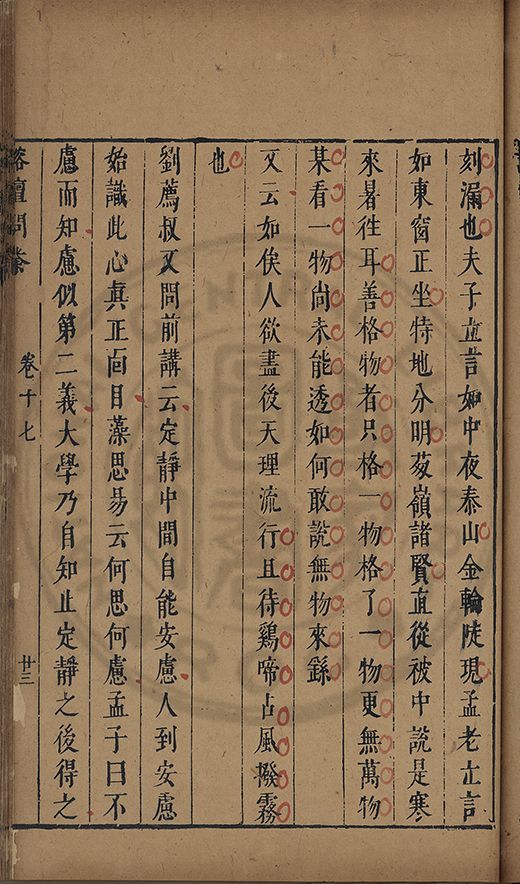 刻漏也夫子立言如中夜泰山金輪陡現孟老立言
如東窗正坐特地分明葱嶺諸賢直從被中說是寒
來暑徃耳善格物者只格一物格了一物更無萬物
某看一物尚未能透如何敢說無物來繇
又云如俟人欲盡後天理流行且待鷄啼占風撥霧
也
劉薦叔又問前講云定靜中間自能安慮人到安慮
始識此心真正面目藻思易云何思何慮孟子曰不
慮而知慮似第二義大學乃自知止定靜之後得之
榕壇問業 卷十七 廿三